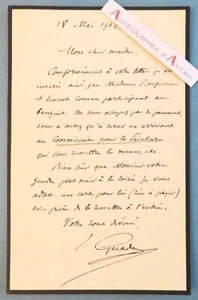 AUTOGRAPHES D'ANTAN
18 Mai 190
Mon cher maître,
Conformément à votre lettre, je vous
inscris ainsi que Mesdames
et Vincent comme participant au
banquet. Ne vous occupez pas de paiement
vous n'aurez qu'à venir en arrivant
au Commissaire pour la Peinture
qui vous remettra les menus, etc.
Bien sûr que Monsieur votre
gendre peut venir à la soirée. Je vous
une carte pour lui (rien à payer)
avec prière de la remettre à l'entrée.
Votre tout dévoué